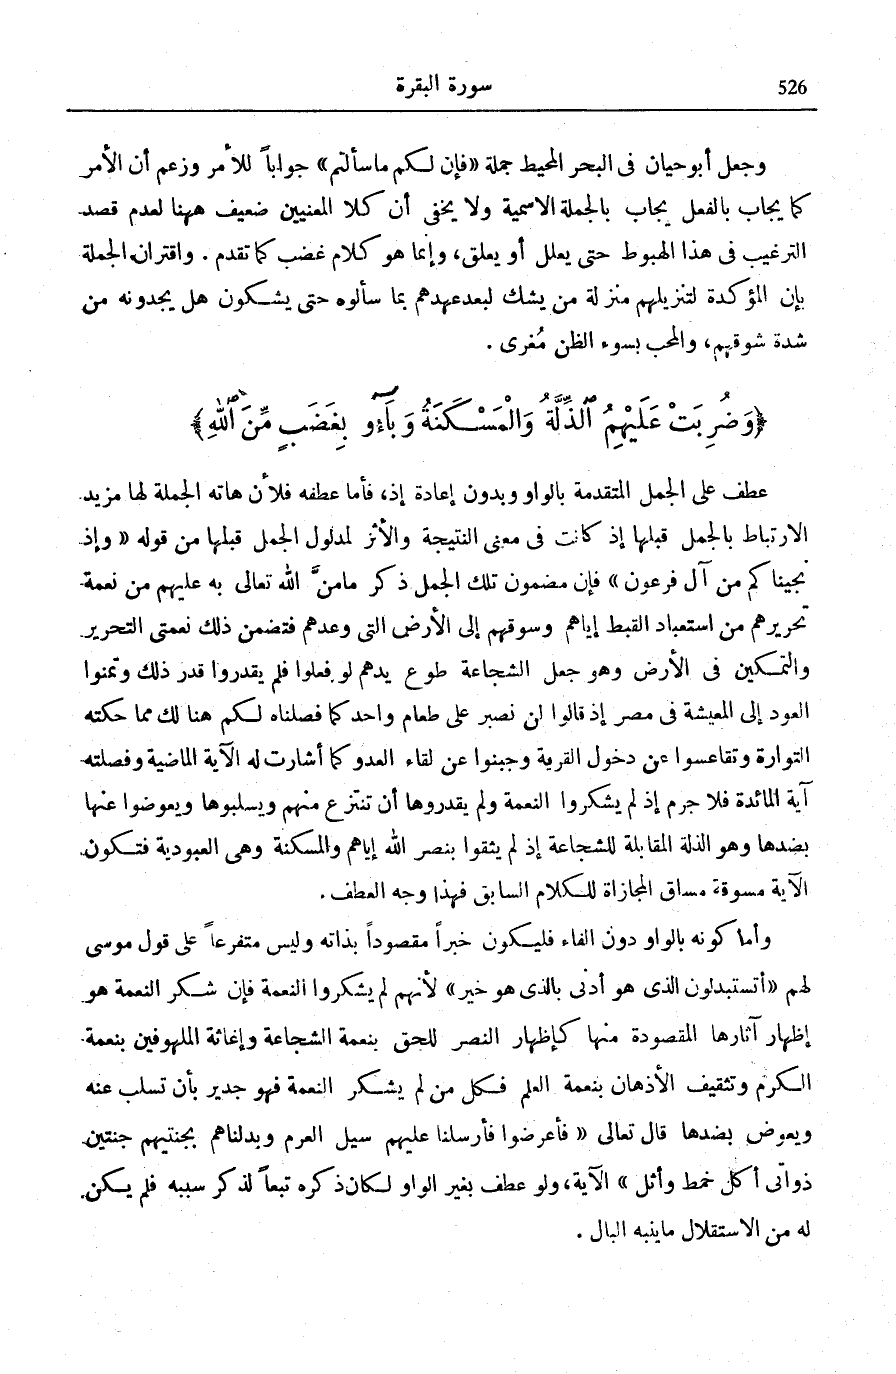 526
سورة البقرة
وجعل أبوحيان فى البحر المحيط جملة «فإن لكم ماسألتم» جواباً للأمر وزعم أن الأمر
كما يجاب بالفعل يجاب بالجملة الاسمية ولا يخفى أن كلا المعنيين ضعيف ههنا لعدم قصد
الترغيب فى هذا الهبوط حتى يعلل أو يعلق، وإنما هو كلام غضب كما تقدم . واقتران الجملة
بإن المؤكدة لتنزيلهم منزلة من يشك لبعدعهدهم بما سألوه حتى يشكون هل يجدونه من
شدة شوقهم، والمحب بسوء الظن مُغرى .
﴿وَضُرِبَتْ عَلَيْهِمُ ٱلذِّلَّةُ وَالْمَسْكَنَةُ وَبَآءُو بِغَضَبٍ مِّنَ ٱللَّهِ﴾
عطف على الجمل المتقدمة بالواو وبدون إعادة إذ، فأما عطفه فلأن هاته الجملة لها مزيد
الارتباط بالجمل قبلها إذ كانت فى معنى النتيجة والأثر لمدلول الجمل قبلها من قوله « وإذ
نجيناكم من آل فرعون » فإن مضمون تلك الجمل ذكر مامنَّ الله تعالى به عليهم من نعمة
تحريرهم من استعباد القبط إياهم وسوقهم إلى الأرض التى وعدهم فتضمن ذلك نعمتى التحرير
والتمكين فى الأرض وهو جعل الشجاعة طوع يدهم لو فعلوا فلم يقدروا قدر ذلك وتمنوا
العود إلى المعيشة فى مصر إذ قالوا لن نصبر على طعام واحد كما فصلناه لكم هنا لك مما حكته
التوارة وتقاعسوا عن دخول القرية وجبنوا عن لقاء العدو كما أشارت له الآية الماضية وفصلته
آية المائدة فلا جرم إذ لم يشكروا النعمة ولم يقدروها أن تنتزع منهم ويسلبوها ويعوضوا عنها
بضدها وهو الذلة المقابلة للشجاعة إذ لم يثقوا بنصر الله إياهم والمسكنة وهى العبودية فتكون
الآية مسوقة مساق المجازاة للكلام السابق فهذا وجه العطف .
وأما كونه بالواو دون الفاء فليكون خبراً مقصوداً بذاته وليس متفرعاً على قول موسى
لهم «أتستبدلون الذى هو أدنى بالذى هو خير» لأنهم لم يشكروا النعمة فإن شكر النعمة هو
إظهار آثارها المقصودة منها كإظهار النصر للحق بنعمة الشجاعة وإغاثة الملهوفين بنعمة
الكرم وتثقيف الأذهان بنعمة العلم فكل من لم يشكر النعمة فهو جدير بأن تسلب عنه
ويعوض بضدها قال تعالى « فأعرضوا فأرسلنا عليهم سيل العرم وبدلناهم بجنتيهم جنتين
ذواتى أكل خمط وأثل » الآية، ولو عطف بغير الواو لكان ذكره تبعاً لذكر سببه فلم يكن
له من الاستقلال ماينبه البال .